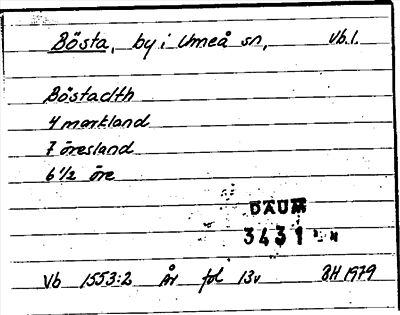 Bösta, by i Umeå sn, Vb.l.
Böstadth
4 markland
7 öresland
6 1/2 öre
DAUM
3431
Vb 1553:2 År fol 13v BH 1979